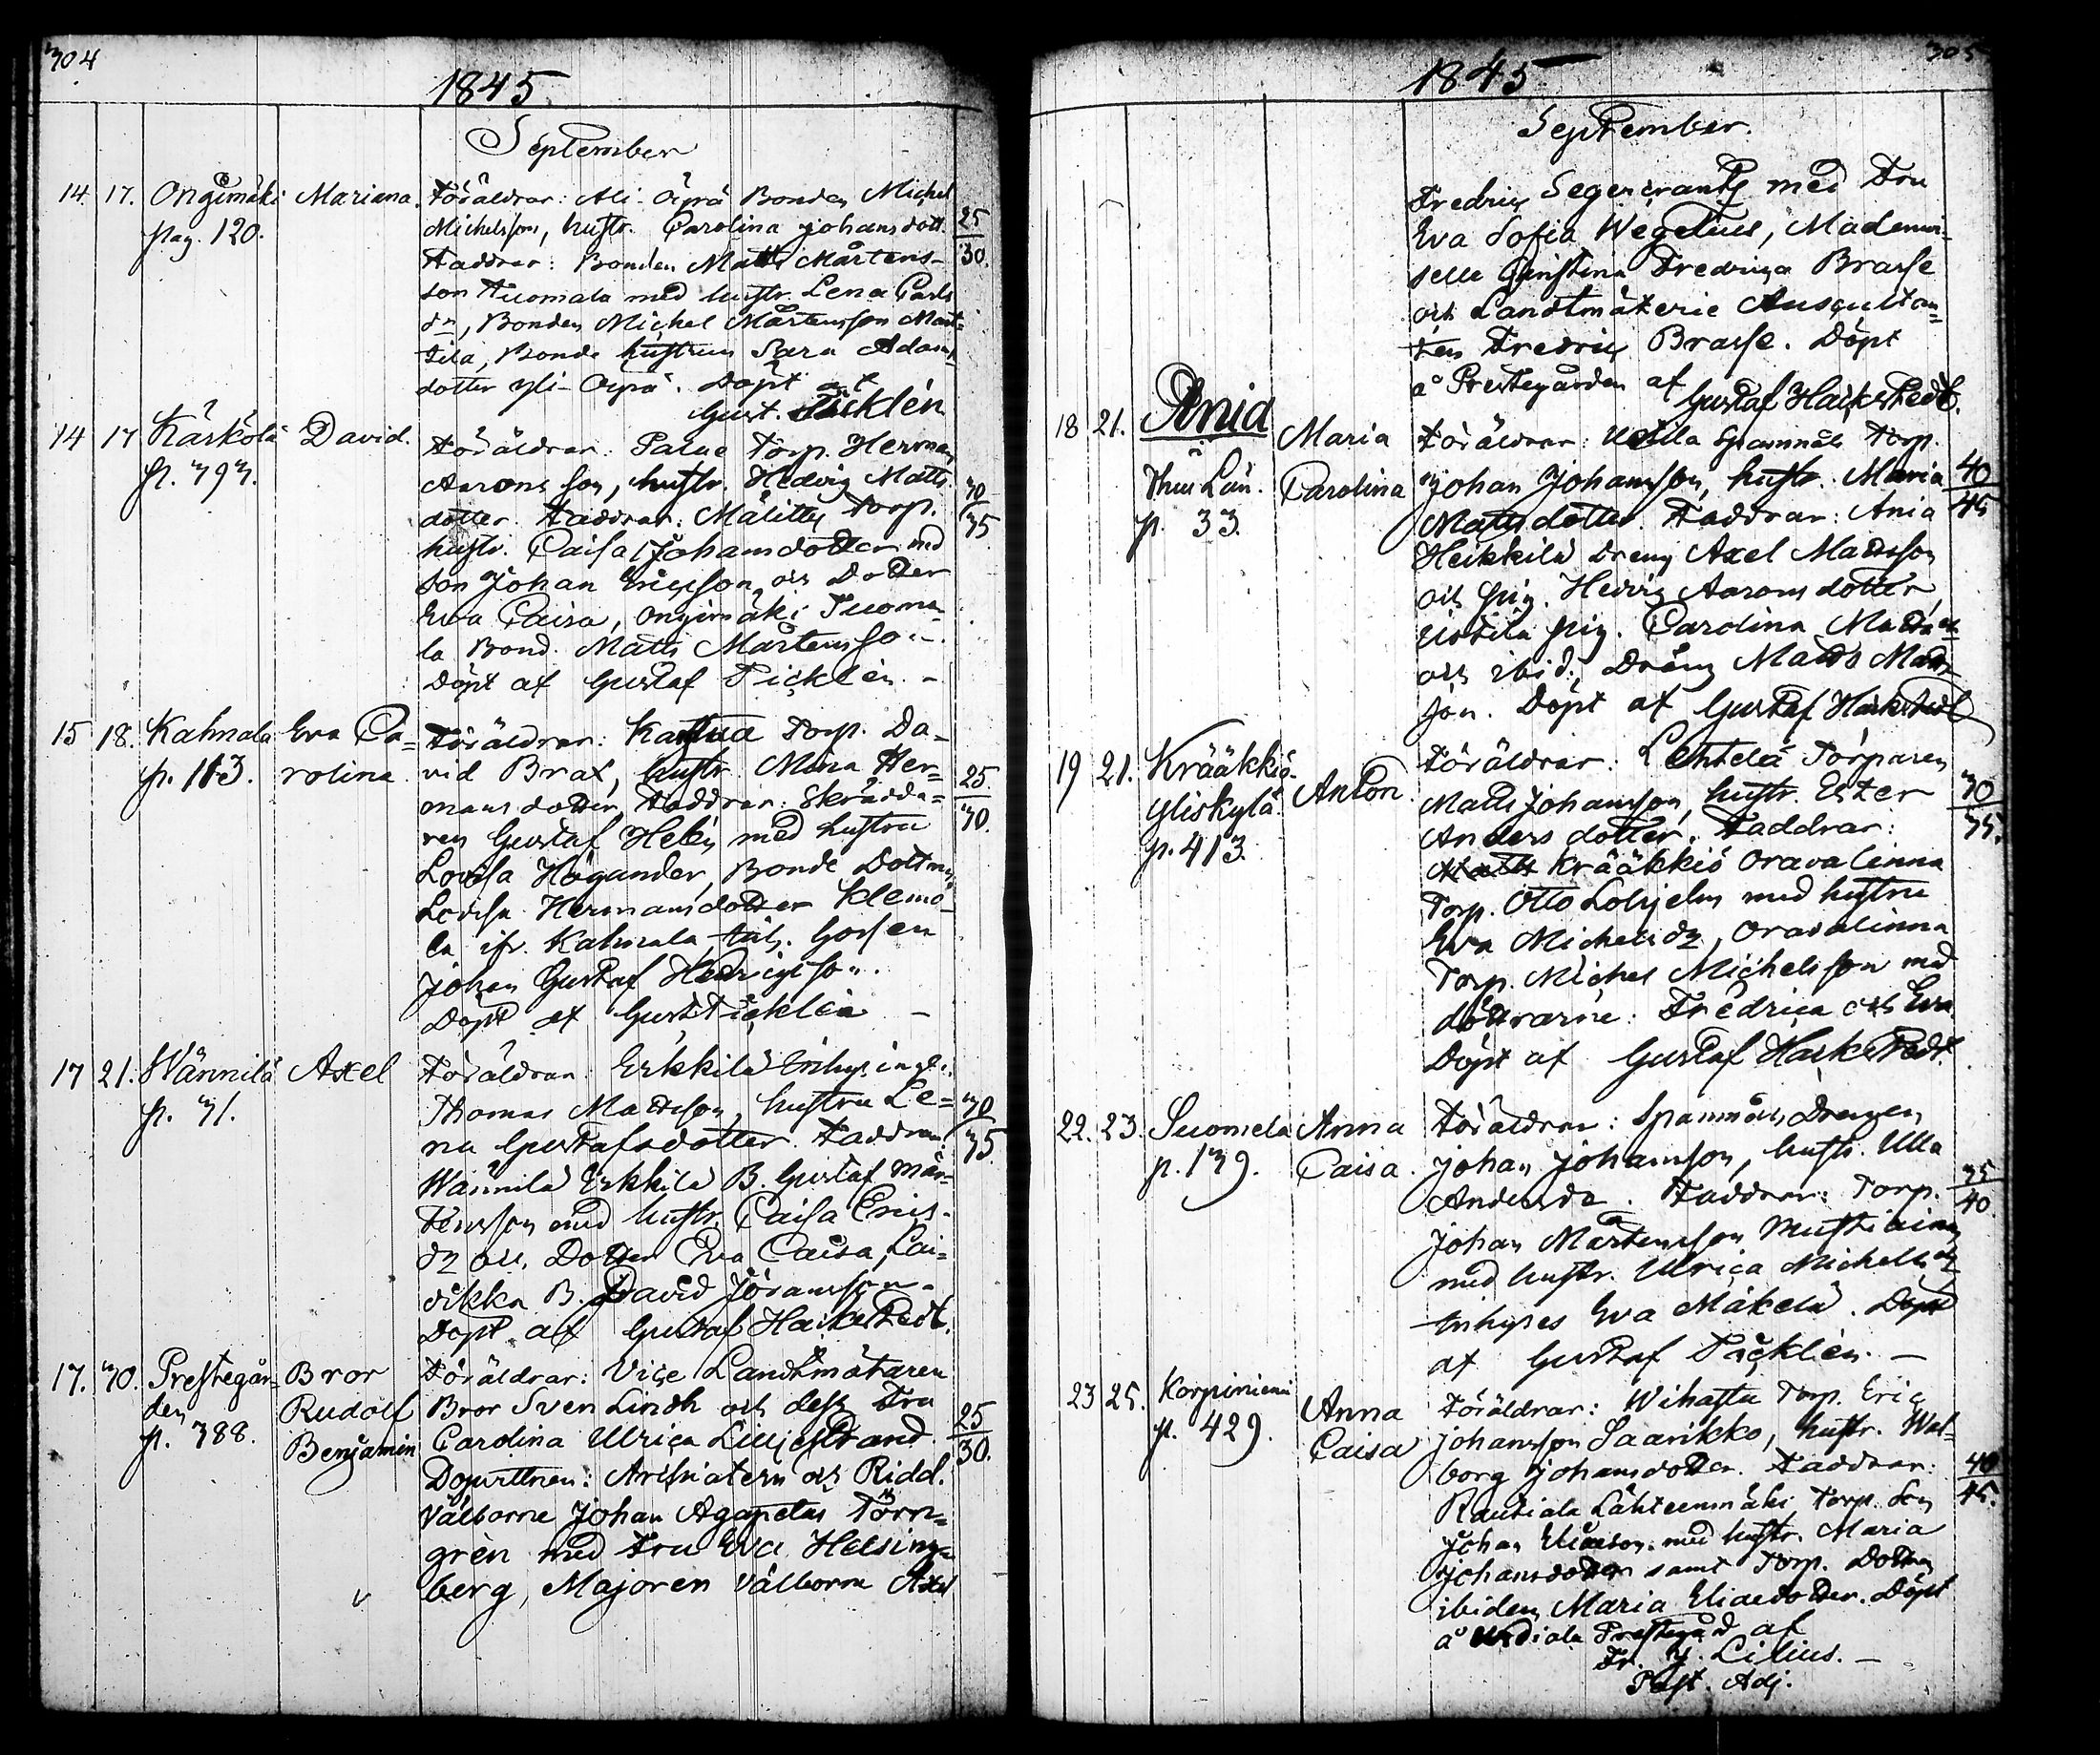 304
1845
September
14. 17. Ongimäki Mariana. Föräldrar: Ali-Äyrä Bonden Michel
pag. 120. Michelsson, hustr. Carolina Johansdott. 25/30.
Faddrar: Bonden Matts Mårtens-
son Tuomala med hustr. Lena Carls
dr, Bonden Michel Mårtensson Mart=
tila, Bonde hustrun Sara Adams
dotter Yli-Äyrä. Döpt af
Gust. Täcklén
14 17 Kärkölä David. Föräldrar: Palue Torp. Herman
p. 393. Aarons son, hustr. Hedvig Matts 30/35
dotter. Faddrar: Mälittys Torp.
hustr. Caisa Johansdotter med
Son Johan Ericsson och Dotter
Eva Caisa, Ongimäki Tuoma-
la Bond. Matts Mårtensson.
Döpt af Gustaf Täcklén. -
15 18. Kalmala Eva Ca= Föräldrar: Torp. Da-
p. 113. rolina. vid Brax, hustr. Mina Her= 25/30.
mansdotter, Faddrar: Skrädda=
ren Gustaf Helén med hustru
Lovisa Högander, Bonde Dottren
Lovisa Hermansdotter Klemo-
la ifr. Kalmala, Gossen
Johan Gustaf Hendricsson.
Döpt af Gust. Täcklén -
17 21. Wännilä Axel Föräldrar: Erkkilä Inhysingl.
p. 31. Thomas Mattsson, hustru Le= 30/35.
na Gustafsdotter. Faddrar:
Wännilä Erkkilä B. Gustaf Mår=
tensson med hustr. Caisa Erics-
dr och Dotter Eva Caisa, Lai=
dikka B. David Göransson.
Döpt af Gustaf Hackstedt.
17. 30. Prestegår= Bror Föräldrar: Vice Landtmätaren
den Rudolf Bror Sven Lindh och dess Fru
p. 388. Benjamin Carolina Ulrica Lilljestrand. 25/30.
Dopvittnen: Archiatern och Ridd.
Välborne Johan Agapetus Törn=
grén med Fru Eva Helsing=
berg, Majoren Välborne Axel
305
1845
September.
Fredric Segercrantz med Fru
Eva Sofia Wegelius, Mademoi-
selle Christina Fredrica Brasse
och Landtmäterie Auscultan=
ten Fredric Brasse. Döpt
å Prestegården af
Gustaf Hackstedt.
18 21. Ania Maria Föräldrar: Uotila Spannmåls Torp.
Thus Län. Carolina Johan Johansson, hustr. Maria 40/45
p. 33. Mattsdotter. Faddrar: Ania
Heikkilä Dreng Axel Mattsson
och Pig. Hedvig Aaronsdotter,
Uotila Pig. Carolina Matts dr
och ibid. Dräng Matts Matts-
son. Döpt af Gustaf Hackstedt
19 21. Krääkkiö Anton. Föräldrar: Lehtelä Torparen
Yliskylä Matts Johansson, hustr. Ester 30/35.
p. 413. Andersdotter. Faddrar:
Krääkkiö Oravalinna
Torp. Otto Lohjelm med hustru
Eva Michelsdr, Oravalinna
Torp. Michel Michelsson med
döttrarne: Fredrica och Eva
Döpt af Gustaf Hackstedt.
22. 23. Suomela Anna Föräldrar: Spannmåls Drengen
p. 139. Caisa. Johan Johansson, hustr. Ulla 35/40
Andersdr. Faddrar: Torp.
Johan Mårtensson
med hustr. Ulrica Michelsdr
Inhyses Eva Mäkelä. Döpt
af Gustaf Täcklén. -
23 25. Korpiniemi Anna Föräldrar: Wihattu Torp. Eric
p. 429. Caisa Johansson Saarikko, hustr. Wal=
borg Johansdotter. Faddrar: 40/45.
Rautiala Lähteenmäki Torp. Son
Johan Eliasson med hustr. Maria
Johansdotter samt Torp. Dottren
ibidem Maria Eliaedotter. Döpt
å Urdiala Prestegård af
Fr. J. Lilius. -
Past. Adj.